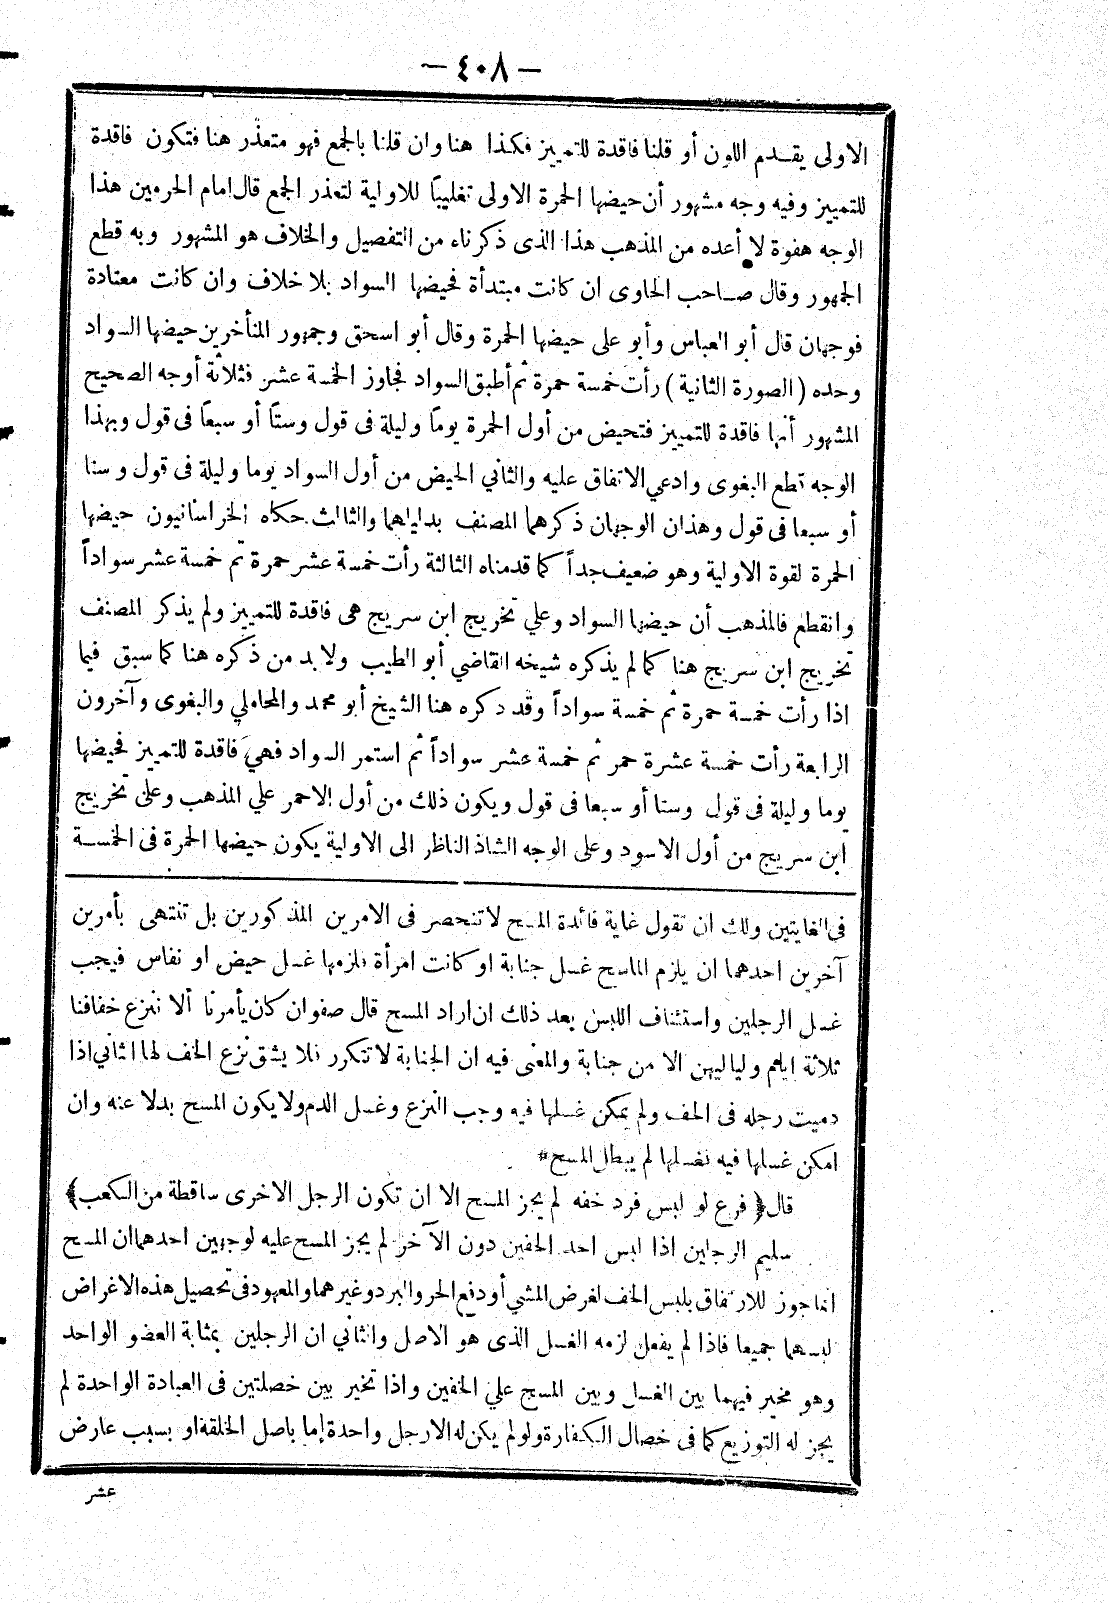 — ٤٠٨ —
الاولى يقدم اللون أو قلنا فاقدة للتمييز فكذا هنا وان قلنا بالجمع فهو متعذر هنا فتكون فاقدة
للتمييز وفيه وجه مشهور أن حيضها الحمرة الاولى تغليبًا للاولية لتعذر الجمع قال امام الحرمين هذا
الوجه هفوة لا أعده من المذهب هذا الذى ذكرناه من التفصيل والخلاف هو المشهور وبه قطع
الجمهور وقال صاحب الحاوى ان كانت مبتدأة فحيضها السواد بلا خلاف وان كانت معتادة
فوجهان قال أبو العباس وأبو على حيضها الحمرة وقال أبو اسحق وجمهور المتأخرين حيضها السواد
وحده (الصورة الثانية) رأت خمسة حمرة ثم أطبق السواد فجاوز الخمسة عشر فثلاثة أوجه الصحيح
المشهور أنها فاقدة للتمييز فتحيض من أول الحمرة يومًا وليلة فى قول وستًا أو سبعًا فى قول وبهذا
الوجه قطع البغوى وادعي الاتفاق عليه والثاني الحيض من أول السواد يوما وليلة فى قول وستا
أو سبعا فى قول وهذان الوجهان ذكرهما المصنف بدليلهما والثالث حكاه الخراسانيون حيضها
الحمرة لقوة الاولية وهو ضعيف جداً كما قدمناه الثالثة رأت خمسة عشر حمرة ثم خمسة عشر سواداً
وانقطع فالمذهب أن حيضها السواد وعلي تخريج ابن سريج هى فاقدة للتمييز ولم يذكر المصنف
تخريج ابن سريج هنا كما لم يذكره شيخه القاضي أبو الطيب ولابد من ذكره هنا كما سبق فيما
اذا رأت خمسة حمرة ثم خمسة سواداً وقد ذكره هنا الشيخ أبو محمد والمحاملي والبغوى وآخرون
الرابعة رأت خمسة عشرة حمر ثم خمسة عشر سواداً ثم استمر السواد فهي فاقدة للتمييز فحيضها
يوما وليلة فى قول وستا أو سبعا فى قول ويكون ذلك من أول الاحمر علي المذهب وعلى تخريج
ابن سريج من أول الاسود وعلى الوجه الشاذ الناظر الى الاولية يكون حيضها الحمرة فى الخمسة
فى الغايتين ولك ان تقول غاية فائدة المسح لا تنحصر فى الامرين المذكورين بل تنتهى بأمرين
آخرين احدهما ان يلزم الماسح غسل جنابة او كانت امرأة فلزمها غسل حيض او نفاس فيجب
غسل الرجلين واستئناف اللبس بعد ذلك ان اراد المسح قال صفوان كان يأمرنا ألا ننزع خفافنا
ثلاثة ايام ولياليهن الا من جنابة والمعنى فيه ان الجنابة لا تتكرر فلا يشق نزع الخف لها الثاني اذا
دميت رجله فى الخف ولم يمكن غسلها فيه وجب النزع وغسل الدم ولا يكون المسح بدلا عنه وان
امكن غسلها فيه فغسلها لم يبطل المسح *
قال ﴿ فرع لو لبس فرد خفه لم يجز المسح الا ان تكون الرجل الاخرى ساقطة من الكعب ﴾
سليم الرجلين اذا لبس احد الخفين دون الآخر لم يجز المسح عليه لوجهين احدهما ان المسح
انما جوز للارتفاق بلبس الخف لغرض المشي أو دفع الحر والبرد وغيرهما والمعهود فى تحصيل هذه الاغراض
لبسهما جميعا فاذا لم يفعل لزمه الغسل الذى هو الاصل والثاني ان الرجلين بمثابة العضو الواحد
وهو مخير فيهما بين الغسل وبين المسح علي الخفين واذا تخير بين خصلتين فى العبادة الواحدة لم
يجز له التوزيع كما فى خصال الكفارة ولو لم يكن له الا رجل واحدة إما باصل الخلقة او بسبب عارض
عشر